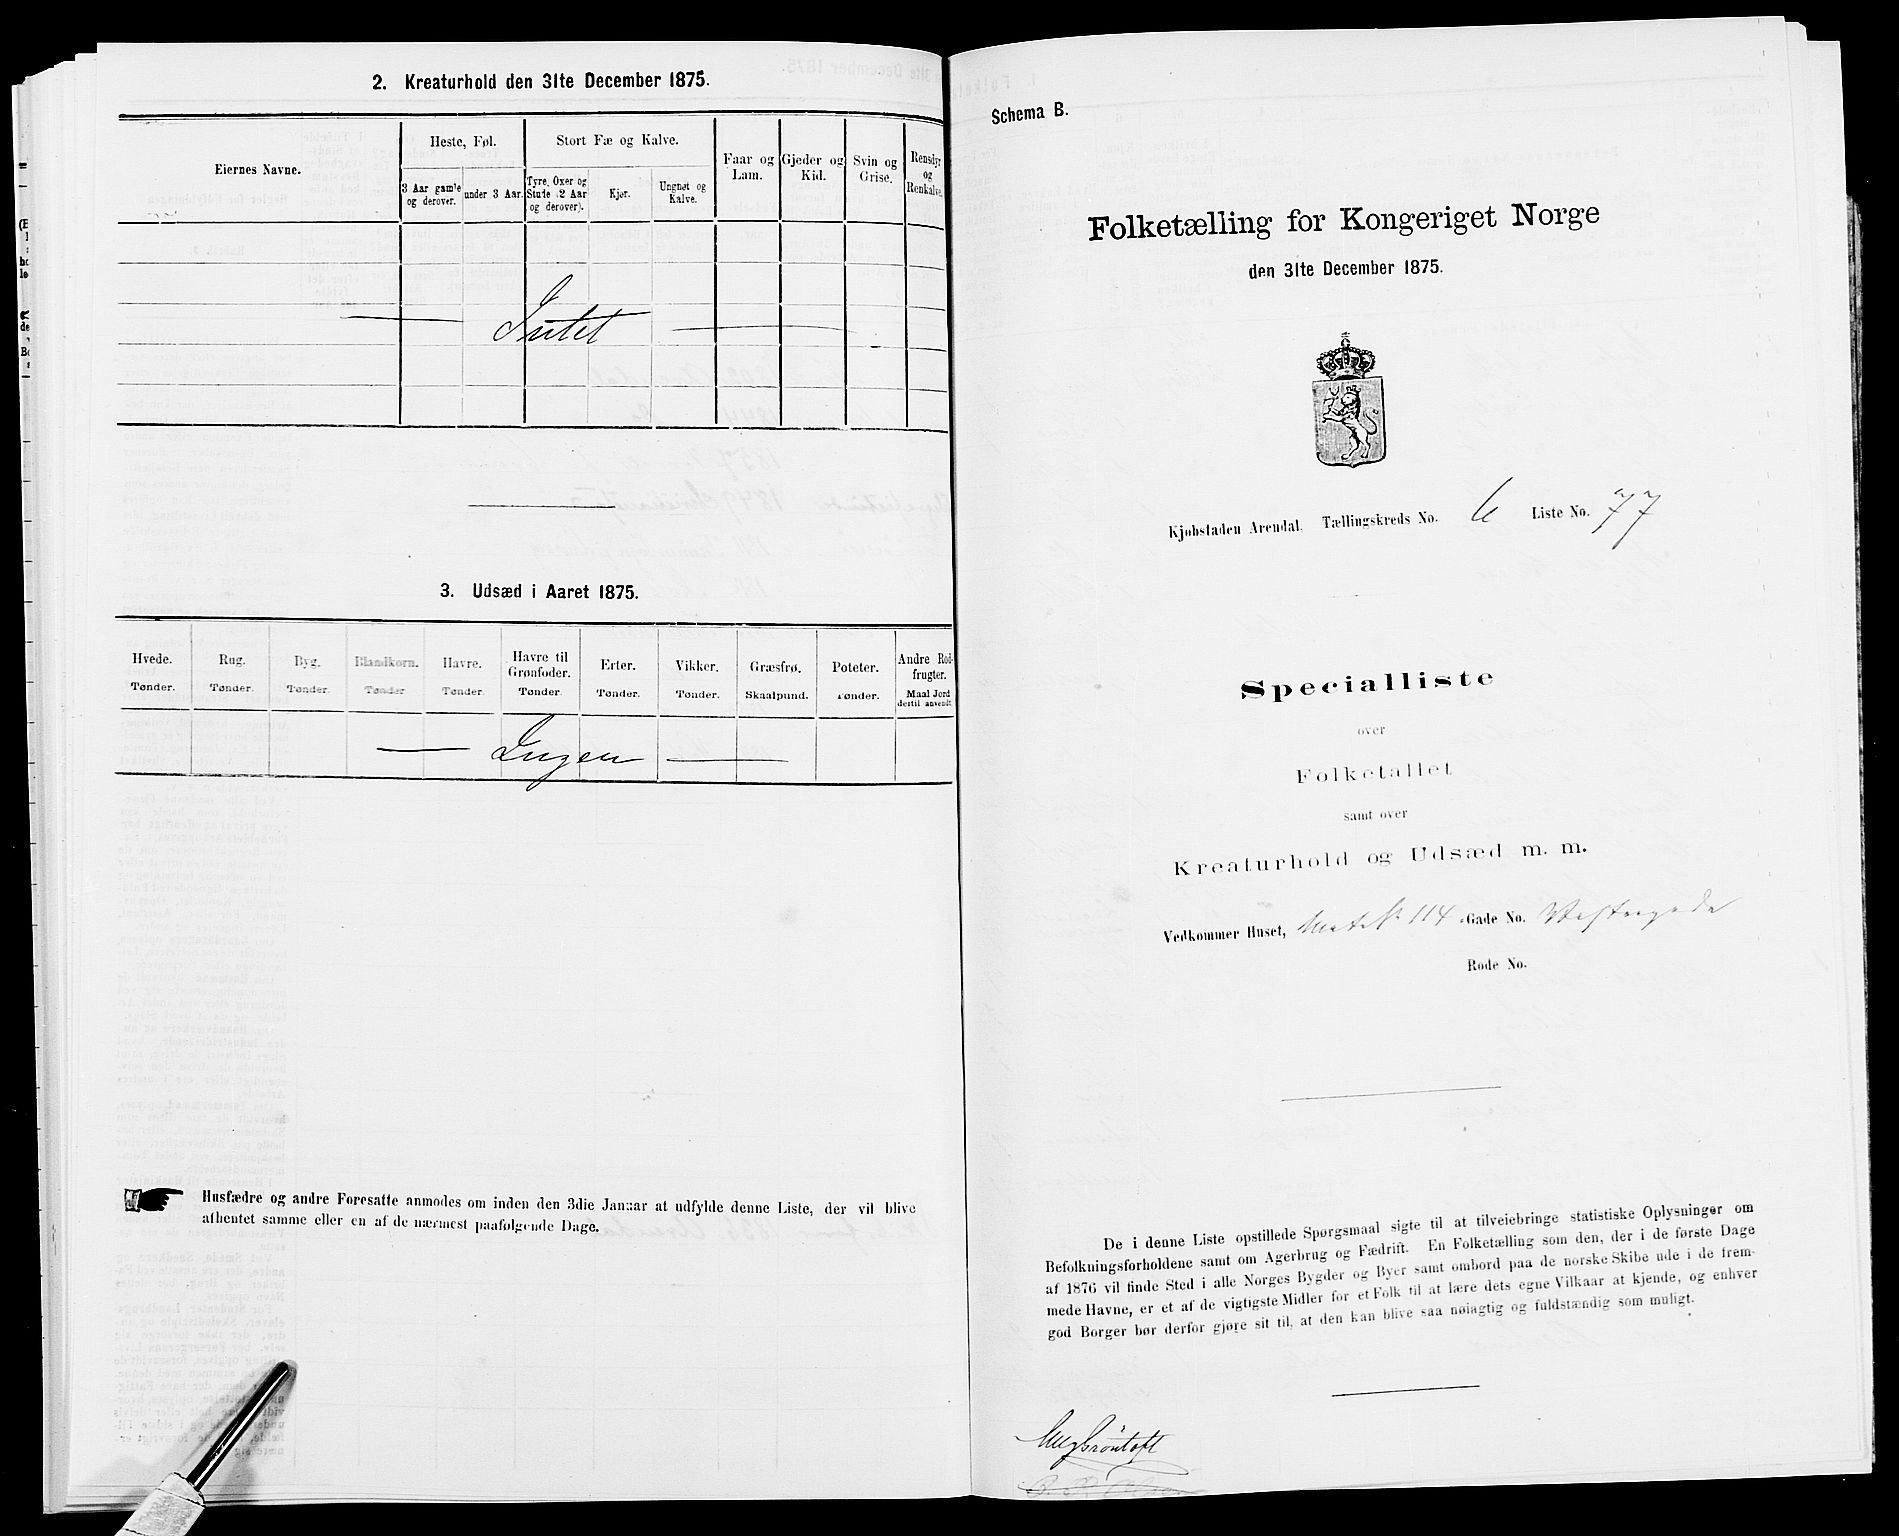 2. Kreaturhold den 31te December 1875.
Eiernes Navne.
Heste, Føl.
Stort Fæ og Kalve.
Faar og Lam.
Gjeder og Kid.
Svin og Grise.
Rensdyr og Renkalve.
3 Aar gamle og derover.
under 3 Aar.
Tyre, Oxer og Stude (2 Aar og derover).
Kjør.
Ungnøt og Kalve.
Intet
3. Udsæd i Aaret 1875.
Hvede. Rug. Byg. Blandkorn. Havre. Havre til Grønfoder. Erter. Vikker. Græsfrø. Poteter. Andre Rodfrugter.
Tønder. Tønder. Tønder. Tønder Tønder. Tønder. Tønder. Tønder. Skaalpund. Tønder. Maal Jord dertil anvendt.
Ingen
Husfædre og andre Foresatte anmodes om inden den 3die Januar at udfylde denne Liste, der vil blive
afhentet samme eller en af de nærmest paafølgende Dage.
Schema B.
Folketælling for Kongeriget Norge
den 31te December 1875.
Kjøbstaden Arendal. Tællingskreds No. 6 Liste No. 77
Specialliste
over
Folketallet
samt over
Kreaturhold og Udsæd m. m.
Vedkommer Huset, Mat No 114 Gade No. Vestregade
Rode No.
De i denne Liste opstillede Spørgsmaal sigte til at tilveiebringe statistiske Oplysninger om
Befolkningsforholdene samt om Agerbrug og Fædrift. En Folketælling som den, der i de første Dage
af 1876 vil finde Sted i alle Norges Bygder og Byer samt ombord paa de norske Skibe ude i de frem-
mede Havne, er et af de vigtigste Midler for et Folk til at lære dets egne Vilkaar at kjende, og enhver
god Borger bør derfor gjøre sit til, at den kan blive saa nøiagtig og fuldstændig som muligt.